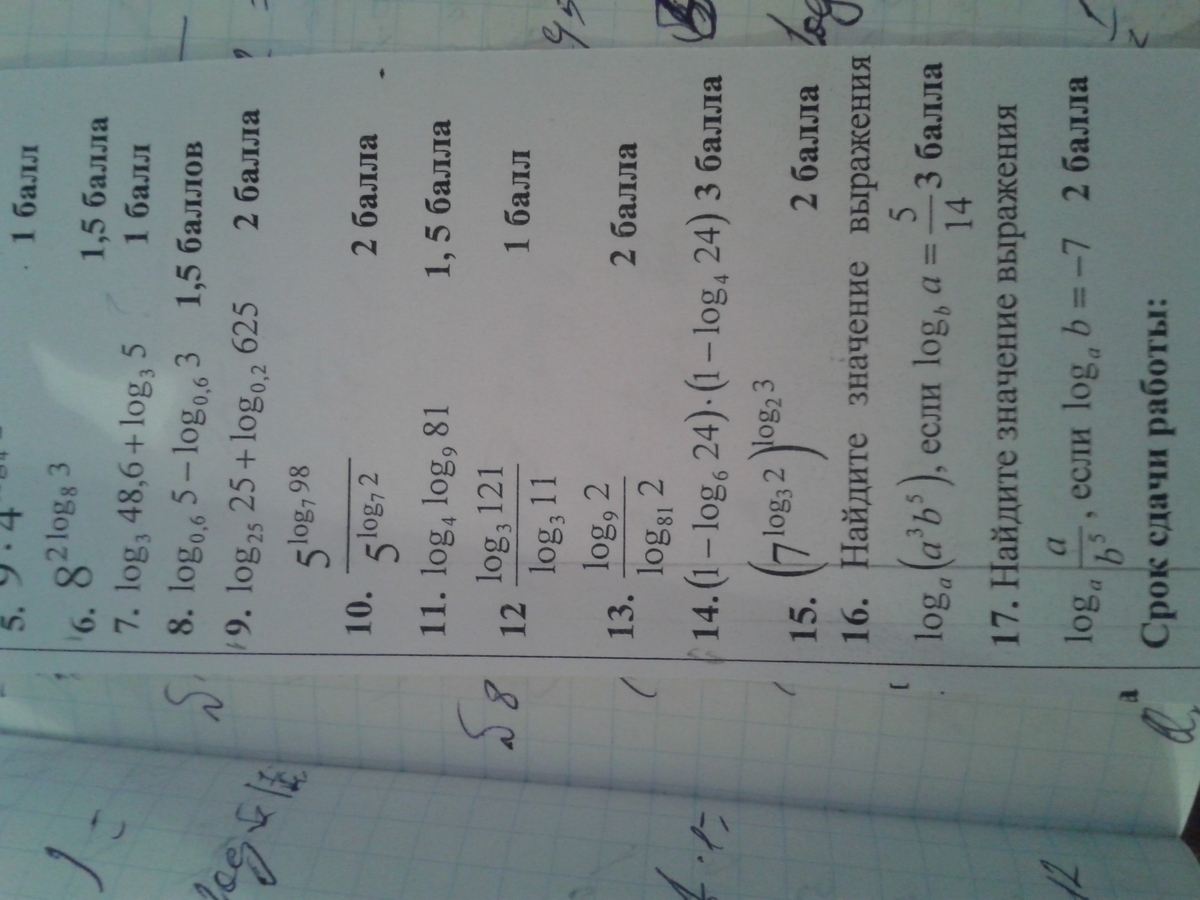 1 балл
6. 8^{2 log₈ 3} 1,5 балла
7. log₃ 48,6 + log₃ 5 1 балл
8. log₀,₆ 5 − log₀,₆ 3 1,5 баллов
9. log₂₅ 25 + log₀,₂ 625 2 балла
5^{log₇ 98}
10. ― 2 балла
5^{log₇ 2}
11. log₄ log₉ 81 1, 5 балла
log₃ 121
12 ― 1 балл
log₃ 11
log₉ 2
13. ― 2 балла
log₈₁ 2
14. (1 − log₆ 24)·(1 − log₄ 24) 3 балла
15. (7^{log₃ 2})^{log₂ 3} 2 балла
16. Найдите значение выражения
logₐ(a³b⁵), если log_b a = 5/14 3 балла
17. Найдите значение выражения
logₐ a/b⁵, если logₐ b = −7 2 балла
Срок сдачи работы: